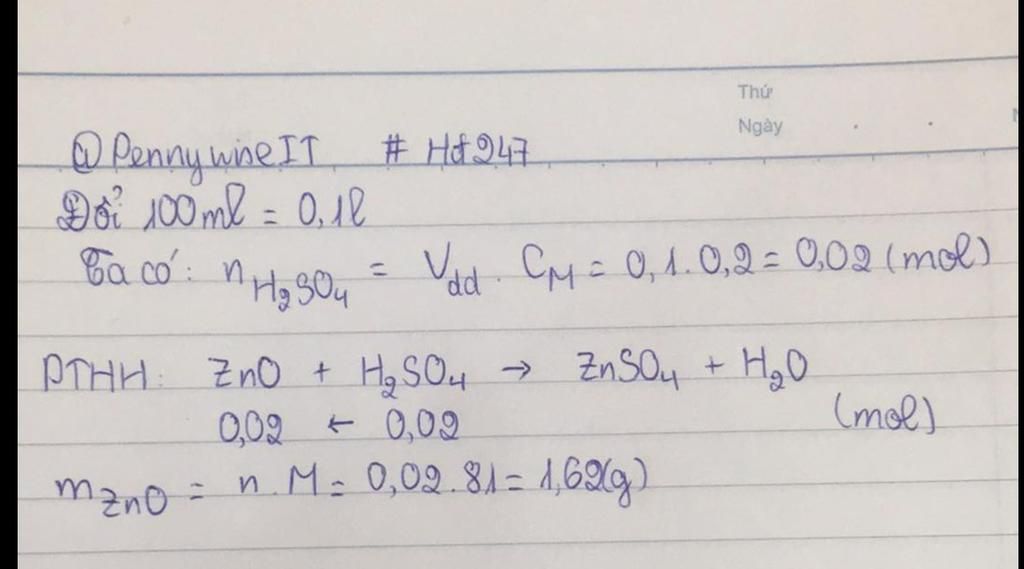 Thứ
Ngày
@PennywiseIT # Hđ247
Đổi 100ml = 0,1l
Ta có: n H₂SO₄ = Vdd . CM = 0,1.0,2 = 0,02 (mol)
PTHH: ZnO + H₂SO₄ → ZnSO₄ + H₂O
0,02 ← 0,02 (mol)
mZnO = n.M = 0,02.81 = 1,62(g)